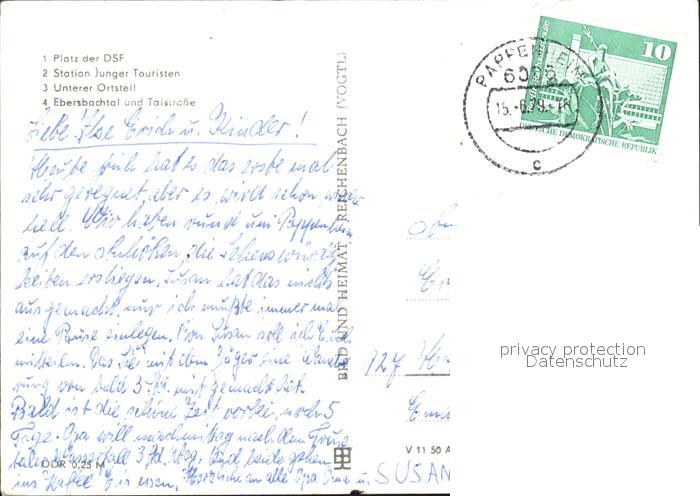 1 Platz der DSF
2 Station Junger Touristen
3 Unterer Ortsteil
4 Ebersbachtal und Talstraße
Liebe Ilse Erich u. Kinder!
Heute früh hat es das erste mal
sehr geregnet aber es wird schon wieder
hell. Wir haben rund um Pappenheim
auf den Anhöhen die Sehenswürdig
keiten erstiegen. Susan hat das nichts
ausgemacht, nur ich mußte immer mal
eine Pause einlegen. Von Susan soll ich Euch
mitteilen. Das Sie mit dem Jäger eine Wande
rung von bald 3 Std. mit gemacht hat.
Bald ist die schöne Zeit vorbei, noch 5
Tage. Opa will nachmittag nach dem Truse
taler Wasserfall 3 Std. Weg. beide gehen
ins Kaffee Eis essen. Herzliche an alle Opa Oma u. SUSAN
DDR 0,25 M
BILD UND HEIMAT REICHENBACH (VOGTL)
V 11 50 A
PAPPENHEIM
15.-6.79.
c
10
DEUTSCHE DEMOKRATISCHE REPUBLIK
127
privacy protection
Datenschutz